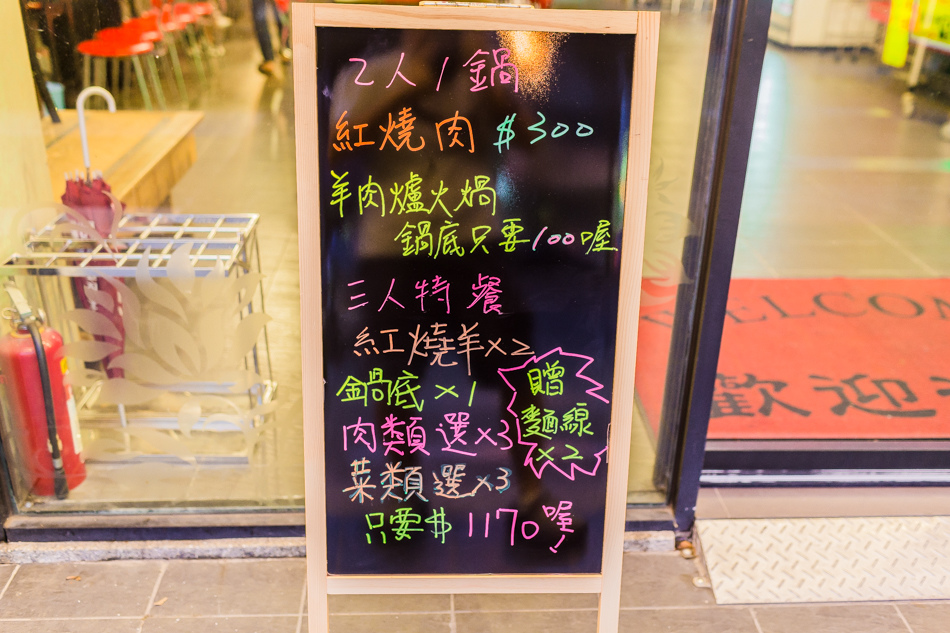 2人/鍋
紅燒肉 $300
羊肉爐火鍋
鍋底只要100喔
三人特餐
紅燒羊x2
鍋底x1
肉類選x3
菜類選x3
贈
麵線
x2
只要$1170喔!
WELCOM
歡迎